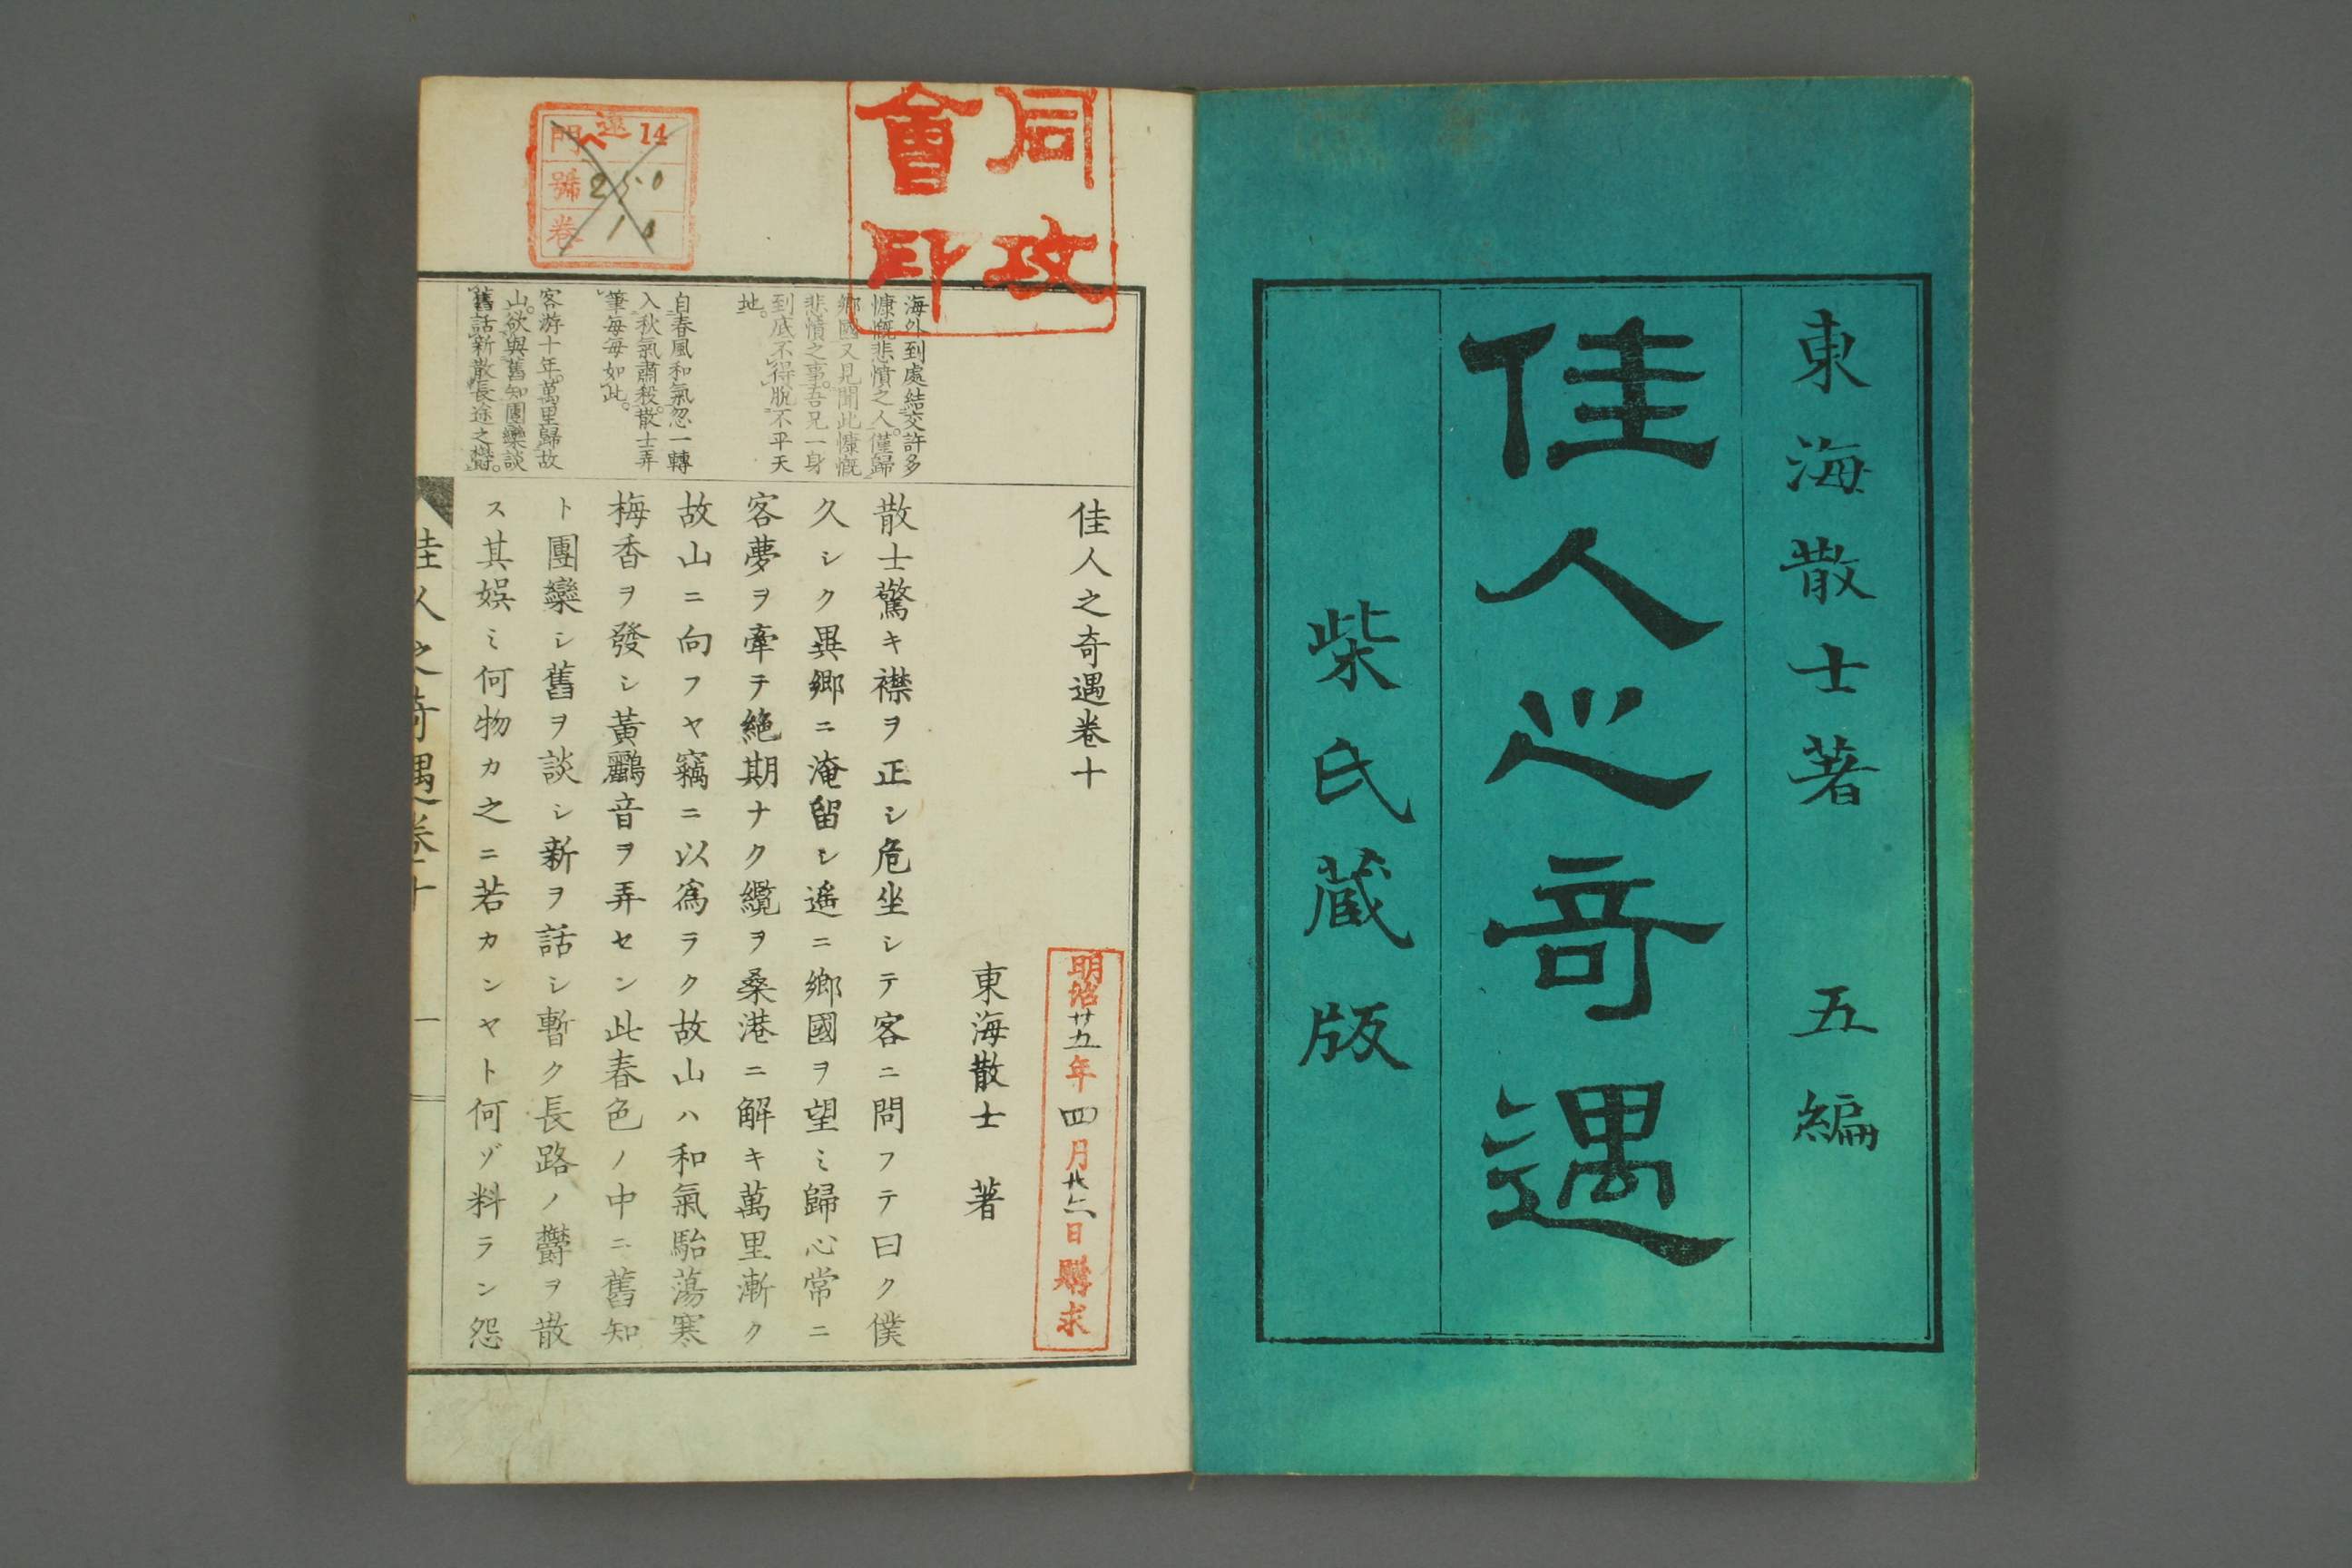 東海散士著　五編
佳人之奇遇
柴氏蔵版
同攻
會印
明治廿五年四月廿六日購求
佳人之奇遇卷十
東海散士　著
散士驚キ襟ヲ正シ危坐シテ客ニ問フテ曰ク僕
久シク異郷ニ淹留シ遙ニ鄉國ヲ望ミ歸心常ニ
客夢ヲ牽テ絶期ナク纜ヲ桑港ニ解キ萬里漸ク
故山ニ向フヤ竊ニ以爲ラク故山ハ和氣駘蕩寒
梅香ヲ發シ黃鸝音ヲ弄セン此春色ノ中ニ舊知
ト團欒シ舊ヲ談シ新ヲ話シ暫ク長路ノ鬱ヲ散
ス其娯ミ何物カ之ニ若カンヤト何ゾ料ラン怨
海外到處結交許多
慷慨悲憤之人。僅歸
鄉國又見聞此慷慨
悲憤之事。吾兄一身
到底不得脫不平天
地。
自春風和氣忽一轉
入秋氣肅殺。散士弄
筆每每如此。
客游十年。萬里歸故
山。欲與舊知團欒談
舊話新散長途之鬱。
門 還 14
號 250
卷
佳人之奇遇卷十　一